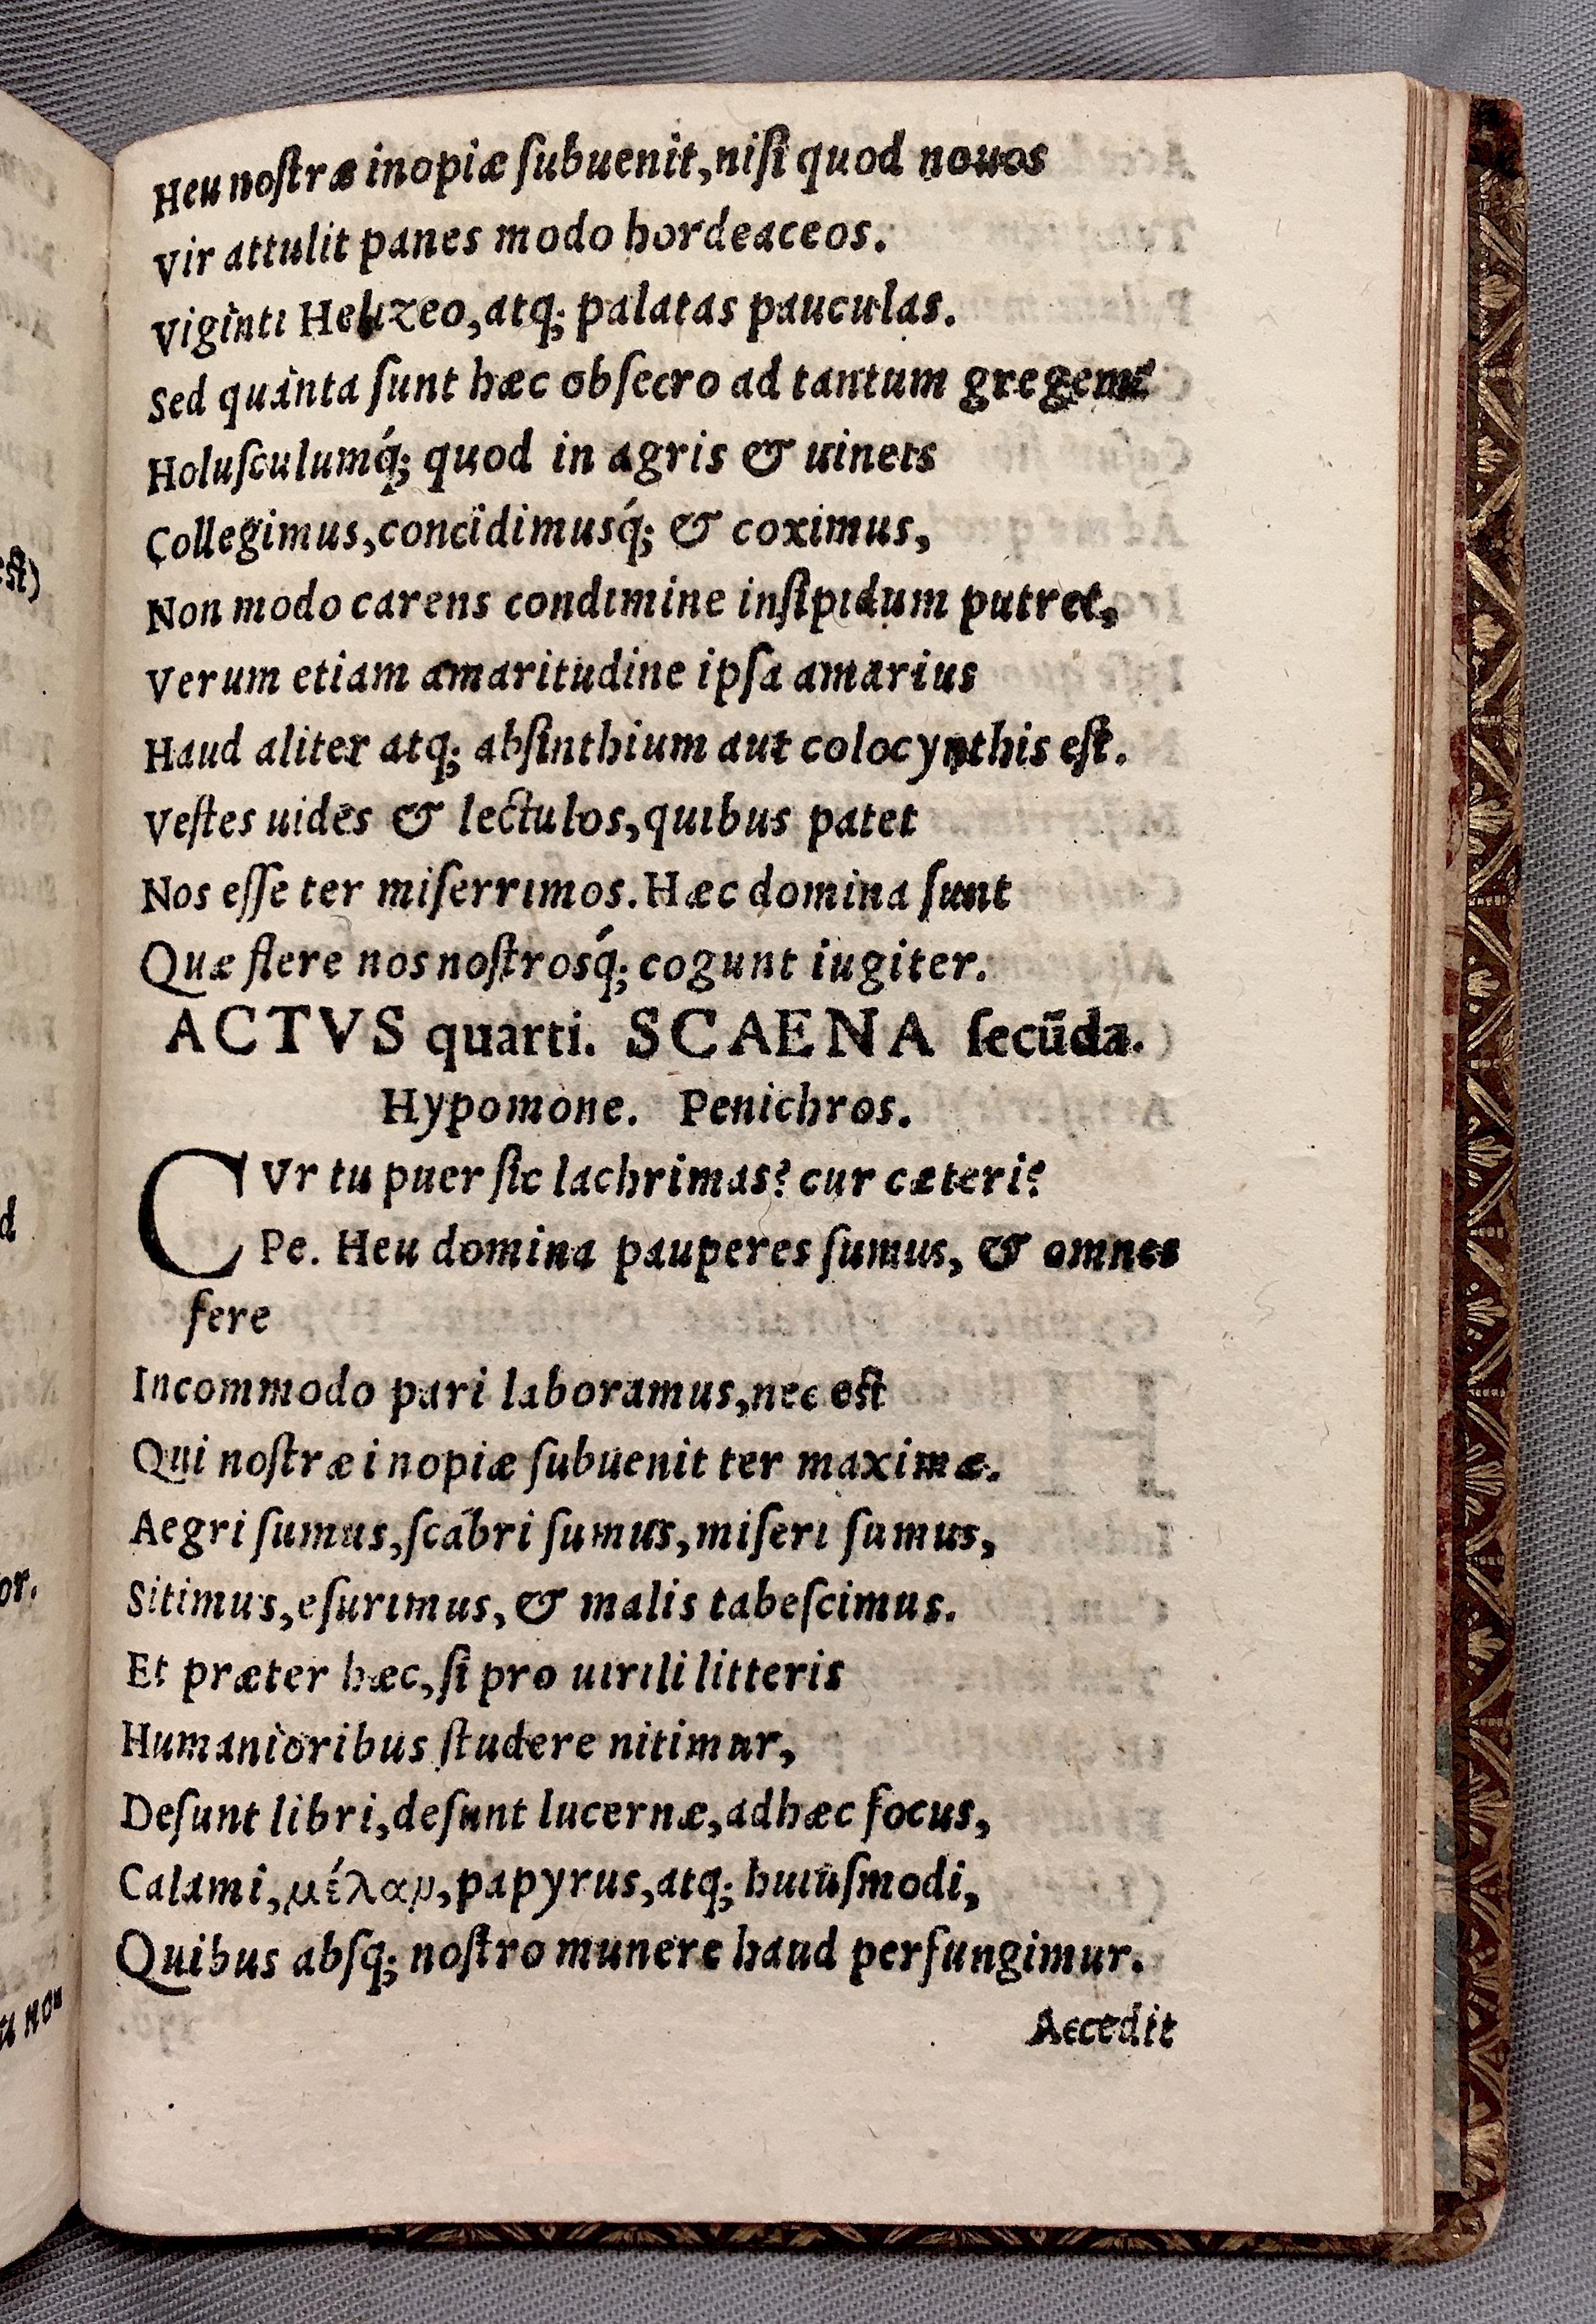 Heu nostræ inopiæ ſubuenit,niſi quod nouos
Vir attulit panes modo hordeaceos.
Viginti Helizeo,atq; palatas pauculas.
Sed quanta ſunt hæc obſecro ad tantum gregem?
Holuſculumq́; quod in agris & uinets
Collegimus,concidimusq́; & coximus,
Non modo carens condimine inſipidum putret,
Verum etiam amaritudine ipſa amarius
Haud aliter atq; abſinthium aut colocynthis eſt.
Veſtes uides & lectulos,quibus patet
Nos eſſe ter miſerrimos.Hæc domina ſunt
Quæ flere nos noſtrosq́; cogunt iugiter.
ACTVS quarti. SCAENA ſecūda.
Hypomone. Penichros.
CVr tu puer ſic lachrimas? cur cæteri?
Pe. Heu domina pauperes ſumus, & omnes
fere
Incommodo pari laboramus,nec eſt
Qui noſtræ inopiæ ſubuenit ter maximæ.
Aegri ſumus,ſcabri ſumus,miſeri ſumus,
Sitimus,eſurimus,& malis tabeſcimus.
Et præter hæc,ſi pro uirili litteris
Humanioribus ſtudere nitimur,
Deſunt libri,deſunt lucernæ,adhæc focus,
Calami,μέλαν,papyrus,atq; huiuſmodi,
Quibus abſq; noſtro munere haud perfungimur.
Accedit
eſt)
d
or.
non